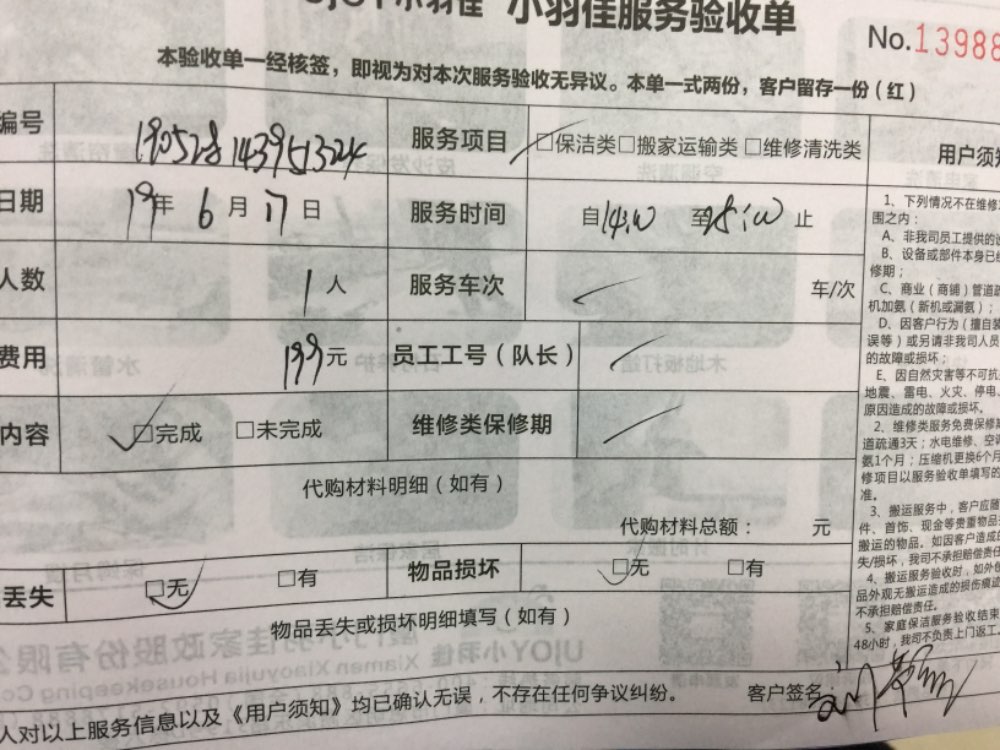 UJOY小羽佳 小羽佳服务验收单
No.13988
本验收单一经核签，即视为对本次服务验收无异议。本单一式两份，客户留存一份（红）
编号 190528143951324 服务项目 □保洁类□搬家运输类□维修清洗类
日期 19年 6月 17日 服务时间 自14:00 至 止
人数 1人 服务车次 车/次
费用 199元 员工工号（队长）
内容 □完成 □未完成 维修类保修期
代购材料明细（如有）
代购材料总额： 元
丢失 □无 □有 物品损坏 □无 □有
物品丢失或损坏明细填写（如有）
人对以上服务信息以及《用户须知》均已确认无误，不存在任何争议纠纷。 客户签名
用户须知
1、下列情况不在维修
围之内：
A、非我司员工提供的
B、设备或部件本身已
修期；
C、商业（商铺）管道疏
机加氨（新机或漏氨）；
D、因客户行为（擅自装
误等）或另请非我司人员
的故障或损坏；
E、因自然灾害等不可抗
地震、雷电、火灾、停电、
原因造成的故障或损坏。
2、维修类服务免费保修期
道疏通3天；水电维修、空
氨1个月；压缩机更换6个月
修项目以服务验收单填写的
准。
3、搬运服务中，客户应随
件、首饰、现金等贵重物品
搬运的物品。如因客户造成的
失/损坏，我司不承担赔偿责任
4、搬运服务验收时，如外包
品外观无搬运造成的损伤痕迹
不承担赔偿责任。
5、家庭保洁服务验收结束
48小时，我司不负责上门返工